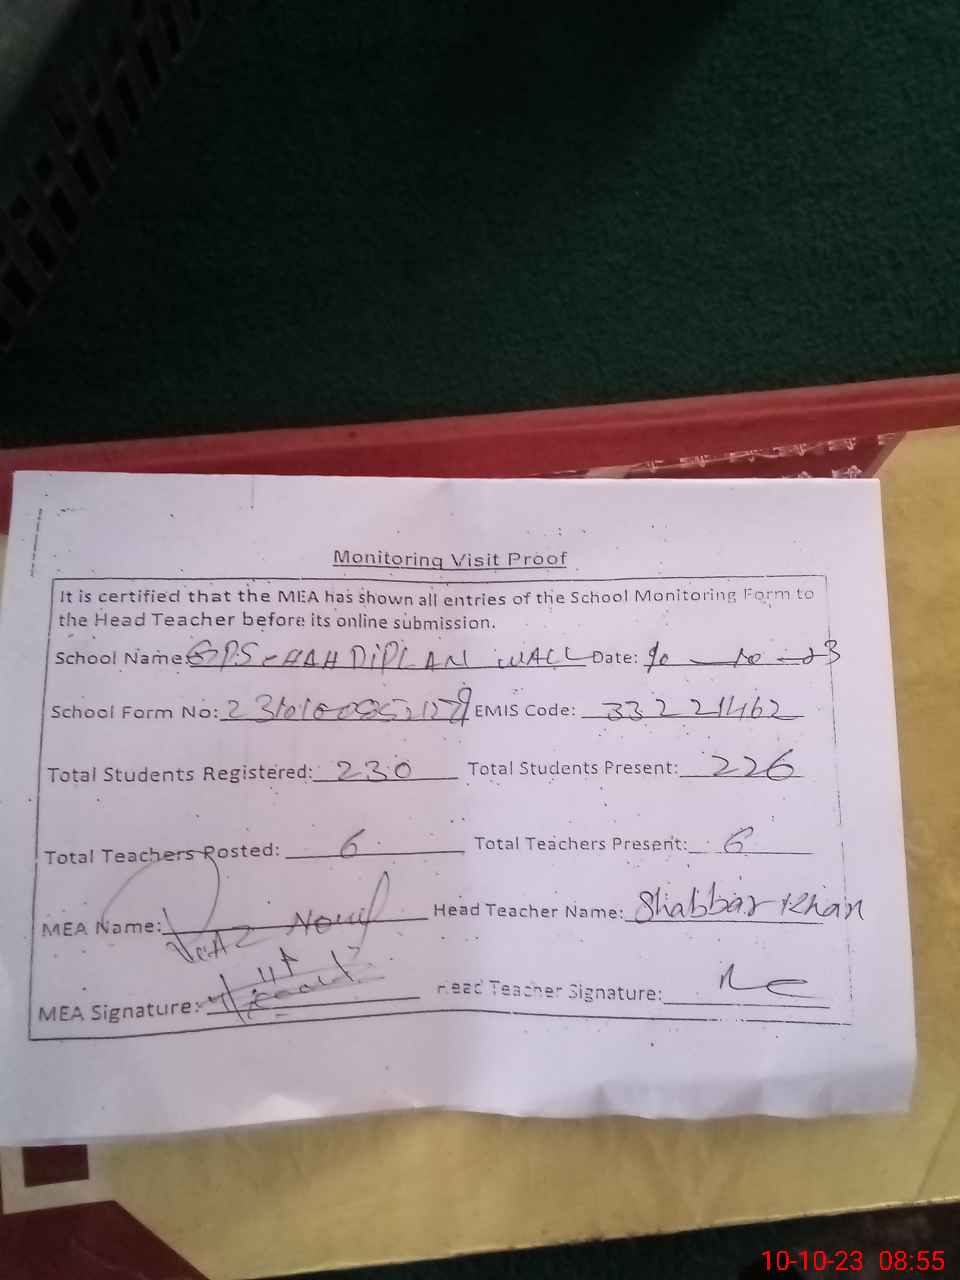 Monitoring Visit Proof
It is certified that the MEA has shown all entries of the School Monitoring Form to
the Head Teacher before its online submission.
School Name: GPS Date: 10-10-23
School Form No: EMIS Code: 33221462
Total Students Registered: 230 Total Students Present: 226
Total Teachers Posted: 6 Total Teachers Present: 6
MEA Name: Head Teacher Name: Shabbar Khan
MEA Signature: Head Teacher Signature:
10-10-23 08:55